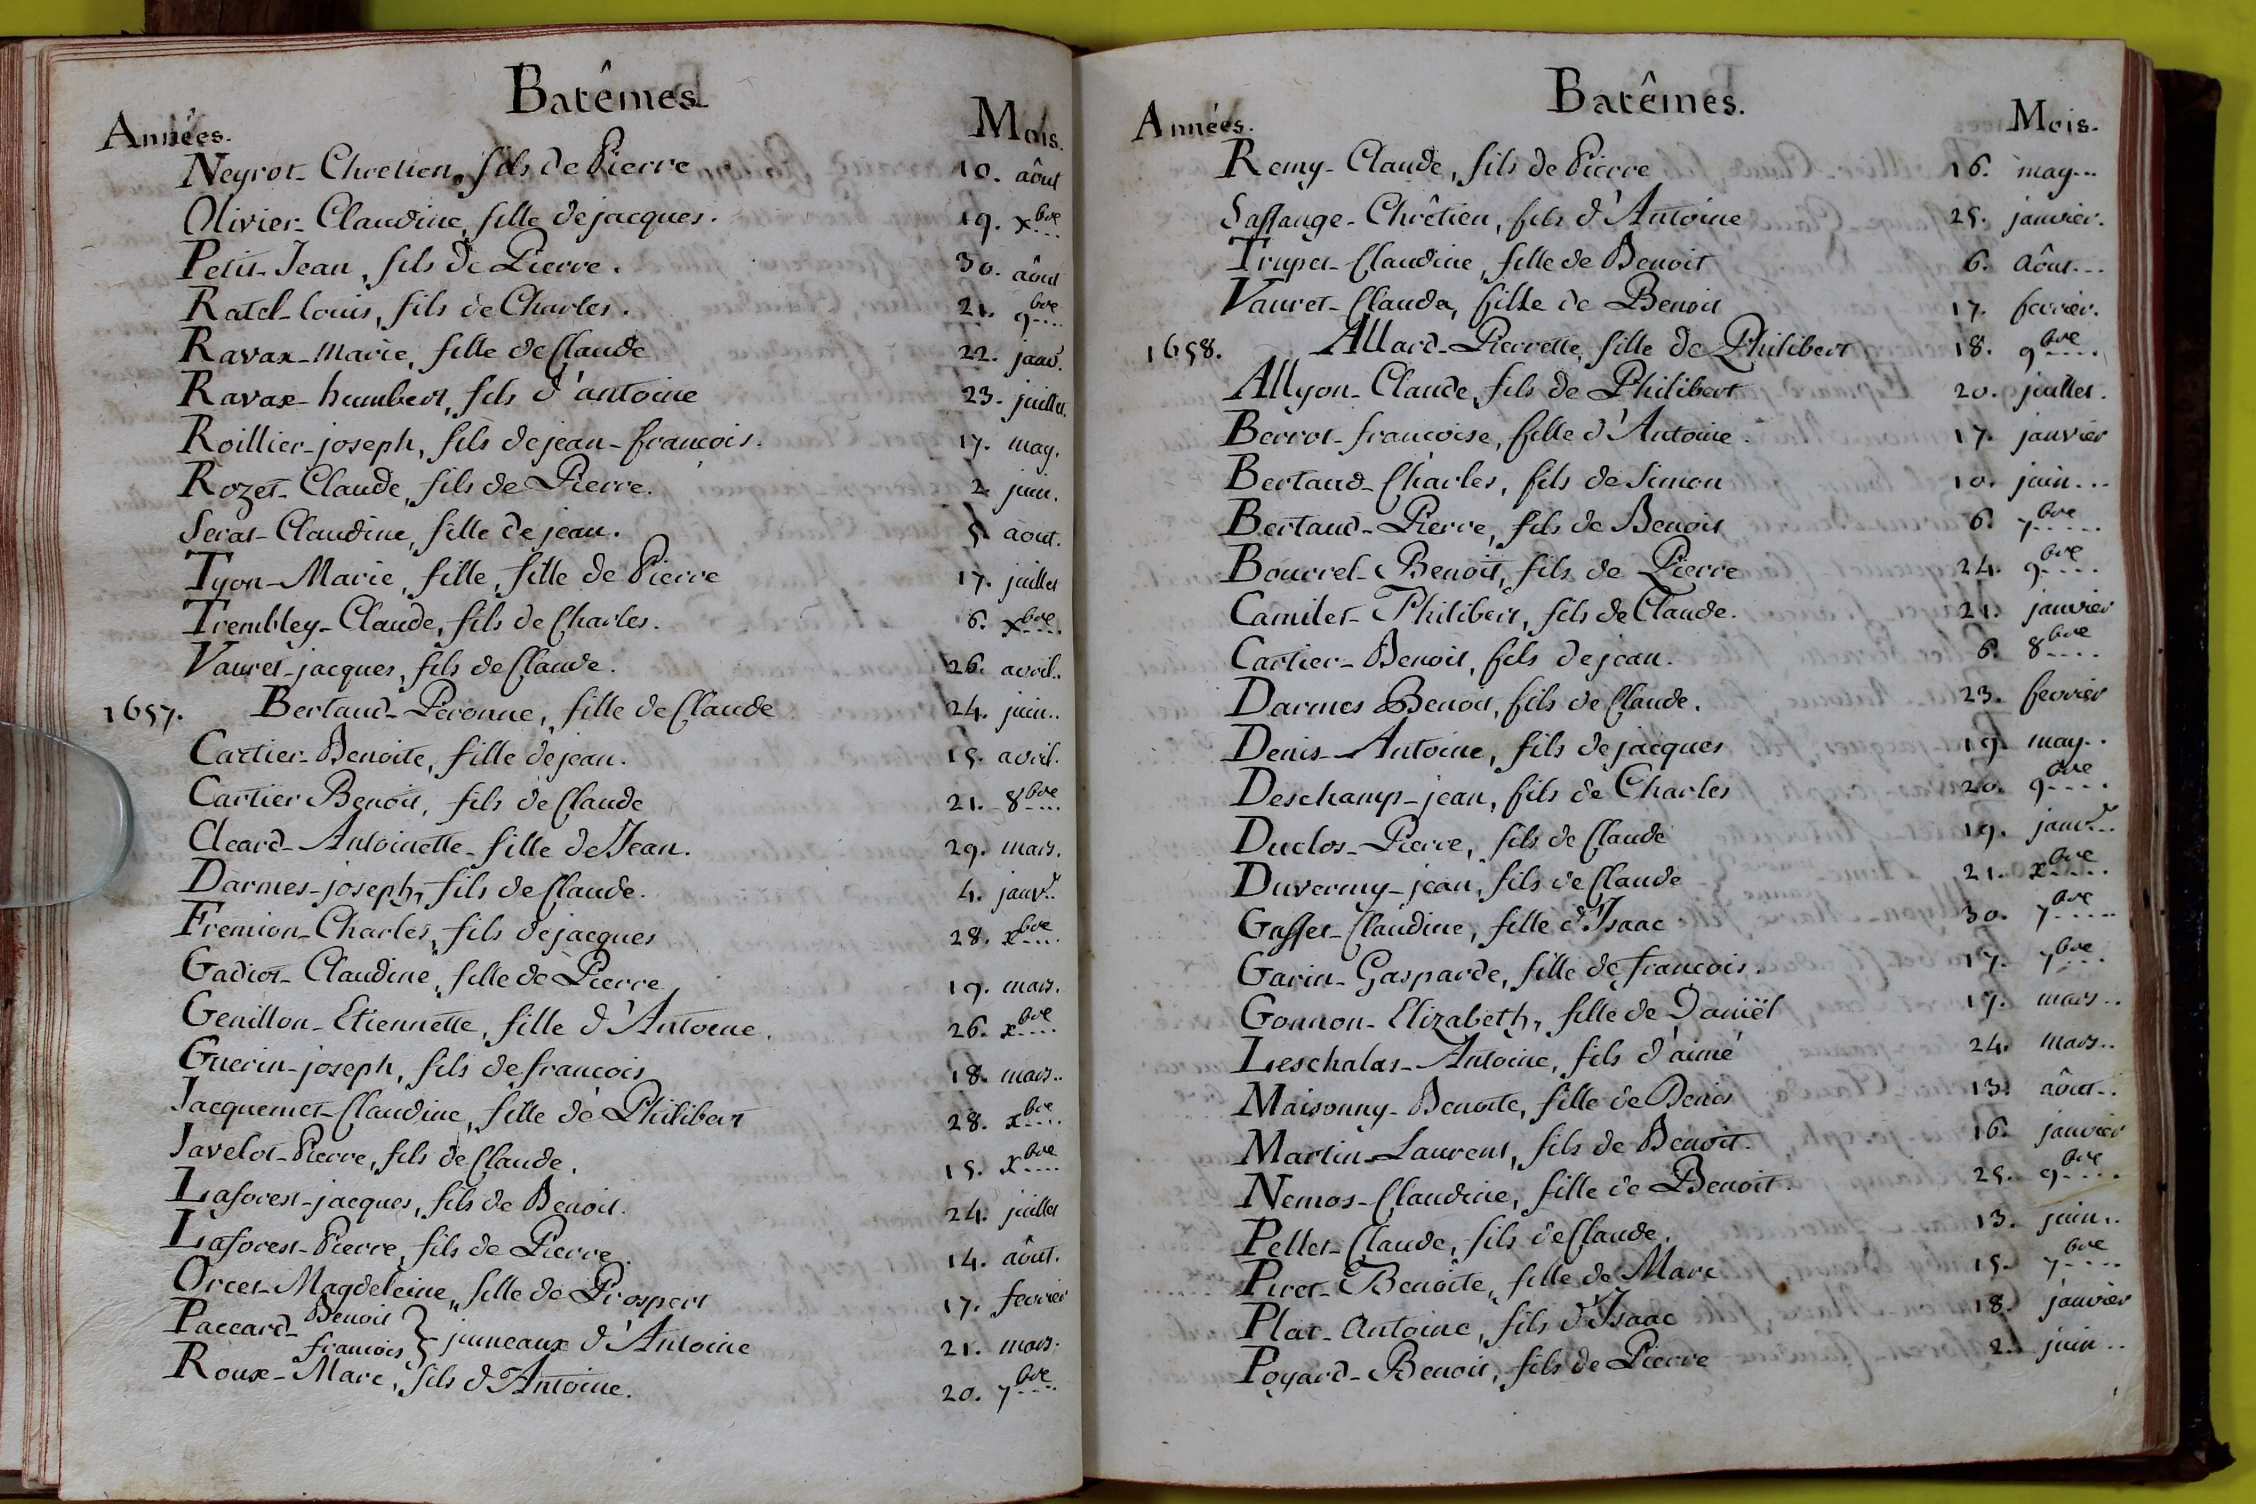 Batêmes
Années. Mois.
Neyrot_ Chretien, fils de Pierre 10. aôut
Olivier_ Claudine, fille de jacques. 19. xbre
Petit_ Jean, fils de Pierre. 30. aôut
Ratel_ louis, fils de Charles. 21. 9bre
Ravax_ Marie, fille de Claude 22. janv.
Ravax_ humbert, fils d'antoine 23. juillet.
Roillier_ joseph, fils de jean_francois. 17. may.
Rozet_ Claude, fils de Pierre. 2 juin.
Serat_ Claudine, fille de jean. 5. aout.
Tyon_ Marie, fille, fille de Pierre 17. juillet
Trembley_ Claude, fils de Charles. 6. xbre.
Vauret_ jacques, fils de Claude. 26. avril..
1657. Bertaud_ Peronne, fille de Claude 24. juin..
Cartier_ Benoite, fille de jean. 15. avril.
Cartier Benoit, fils de Claude 21. 8bre
Cleard_ Antoinette_ fille de Jean. 29. mars.
Darmes_ joseph, fils de Claude. 4. janvr.
Fremion_ Charles, fils de jacques 28. xbre
Gadiot_ Claudine, fille de Pierre 19. mars.
Genillon_ Etiennette, fille d'Antoine. 26. xbre
Guerin_ joseph, fils de francois 18. mars..
Jacquemet_ Claudine, fille de Philibert 28. xbre
Javelot_ Pierre, fils de Claude. 15. xbre
Laforest_ jacques, fils de Benoit. 24. juillet
Laforest_ Pierre, fils de Pierre. 14. aôut.
Orcet_ Magdeleine, fille de Prospert 17. fevrier
Paccard_ Benoit francois } jumeaux d'Antoine 21. mars.
Roux_ Marc, fils d'Antoine. 20. 7bre
Batêmes.
Années. Mois.
Remy_ Claude, fils de Pierre 16. may...
Saffange_ Chrêtien, fils d'Antoine 25. janvier.
Trupet_ Claudine, fille de Benoit 6. Aôut...
Vauret_ Clauda, fille de Benoit 17. fevrier.
1658. Allard_ Pierrette, fille de Philibert 18. 9bre
Allyon_ Claude, fils de Philibert 20. juillet.
Berrot_ francoise, fille d'Antoine. 17. janvier
Bertaud_ Charles, fils de Simon 10. juin...
Bertaud_ Pierre, fils de Benoit 6. 7bre
Bourrel_ Benoit, fils de Pierre 24. 9bre
Camilet_ Philibert, fils de Claude. 21. janvier
Cartier_ Benoit, fils de jean. 6. 8bre
Darmes Benoit, fils de Claude. 23. fevrier
Denis_ Antoine, fils de jacques 19. may..
Deschamp_ jean, fils de Charles 20. 9bre
Duclos_ Pierre, fils de Claude 19. janvr...
Duvermy_ jean, fils de Claude 21. xbre
Gasset_ Claudine, fille d'Isaac 30. 7bre
Garin_ Gasparde, fille de francois. 17. 7bre
Gonnon_ Elizabeth, fille de Daniël 17. mars..
Leschalas_ Antoine, fils d'aimé 24. mars..
Maisonny_ Benoite, fille de Benoit 13. aôut..
Martin_ Laurent, fils de Benoit. 16. janvier
Nemos_ Claudine, fille de Benoit. 25. 9bre
Pellet_ Claude, fils de Claude. 13. juin..
Piret_ Benoîte, fille de Marc 15. 7bre
Plat_ Antoine, fils d'Isaac 18. janvier
Poyard_ Benoit, fils de Pierre 2. juin..